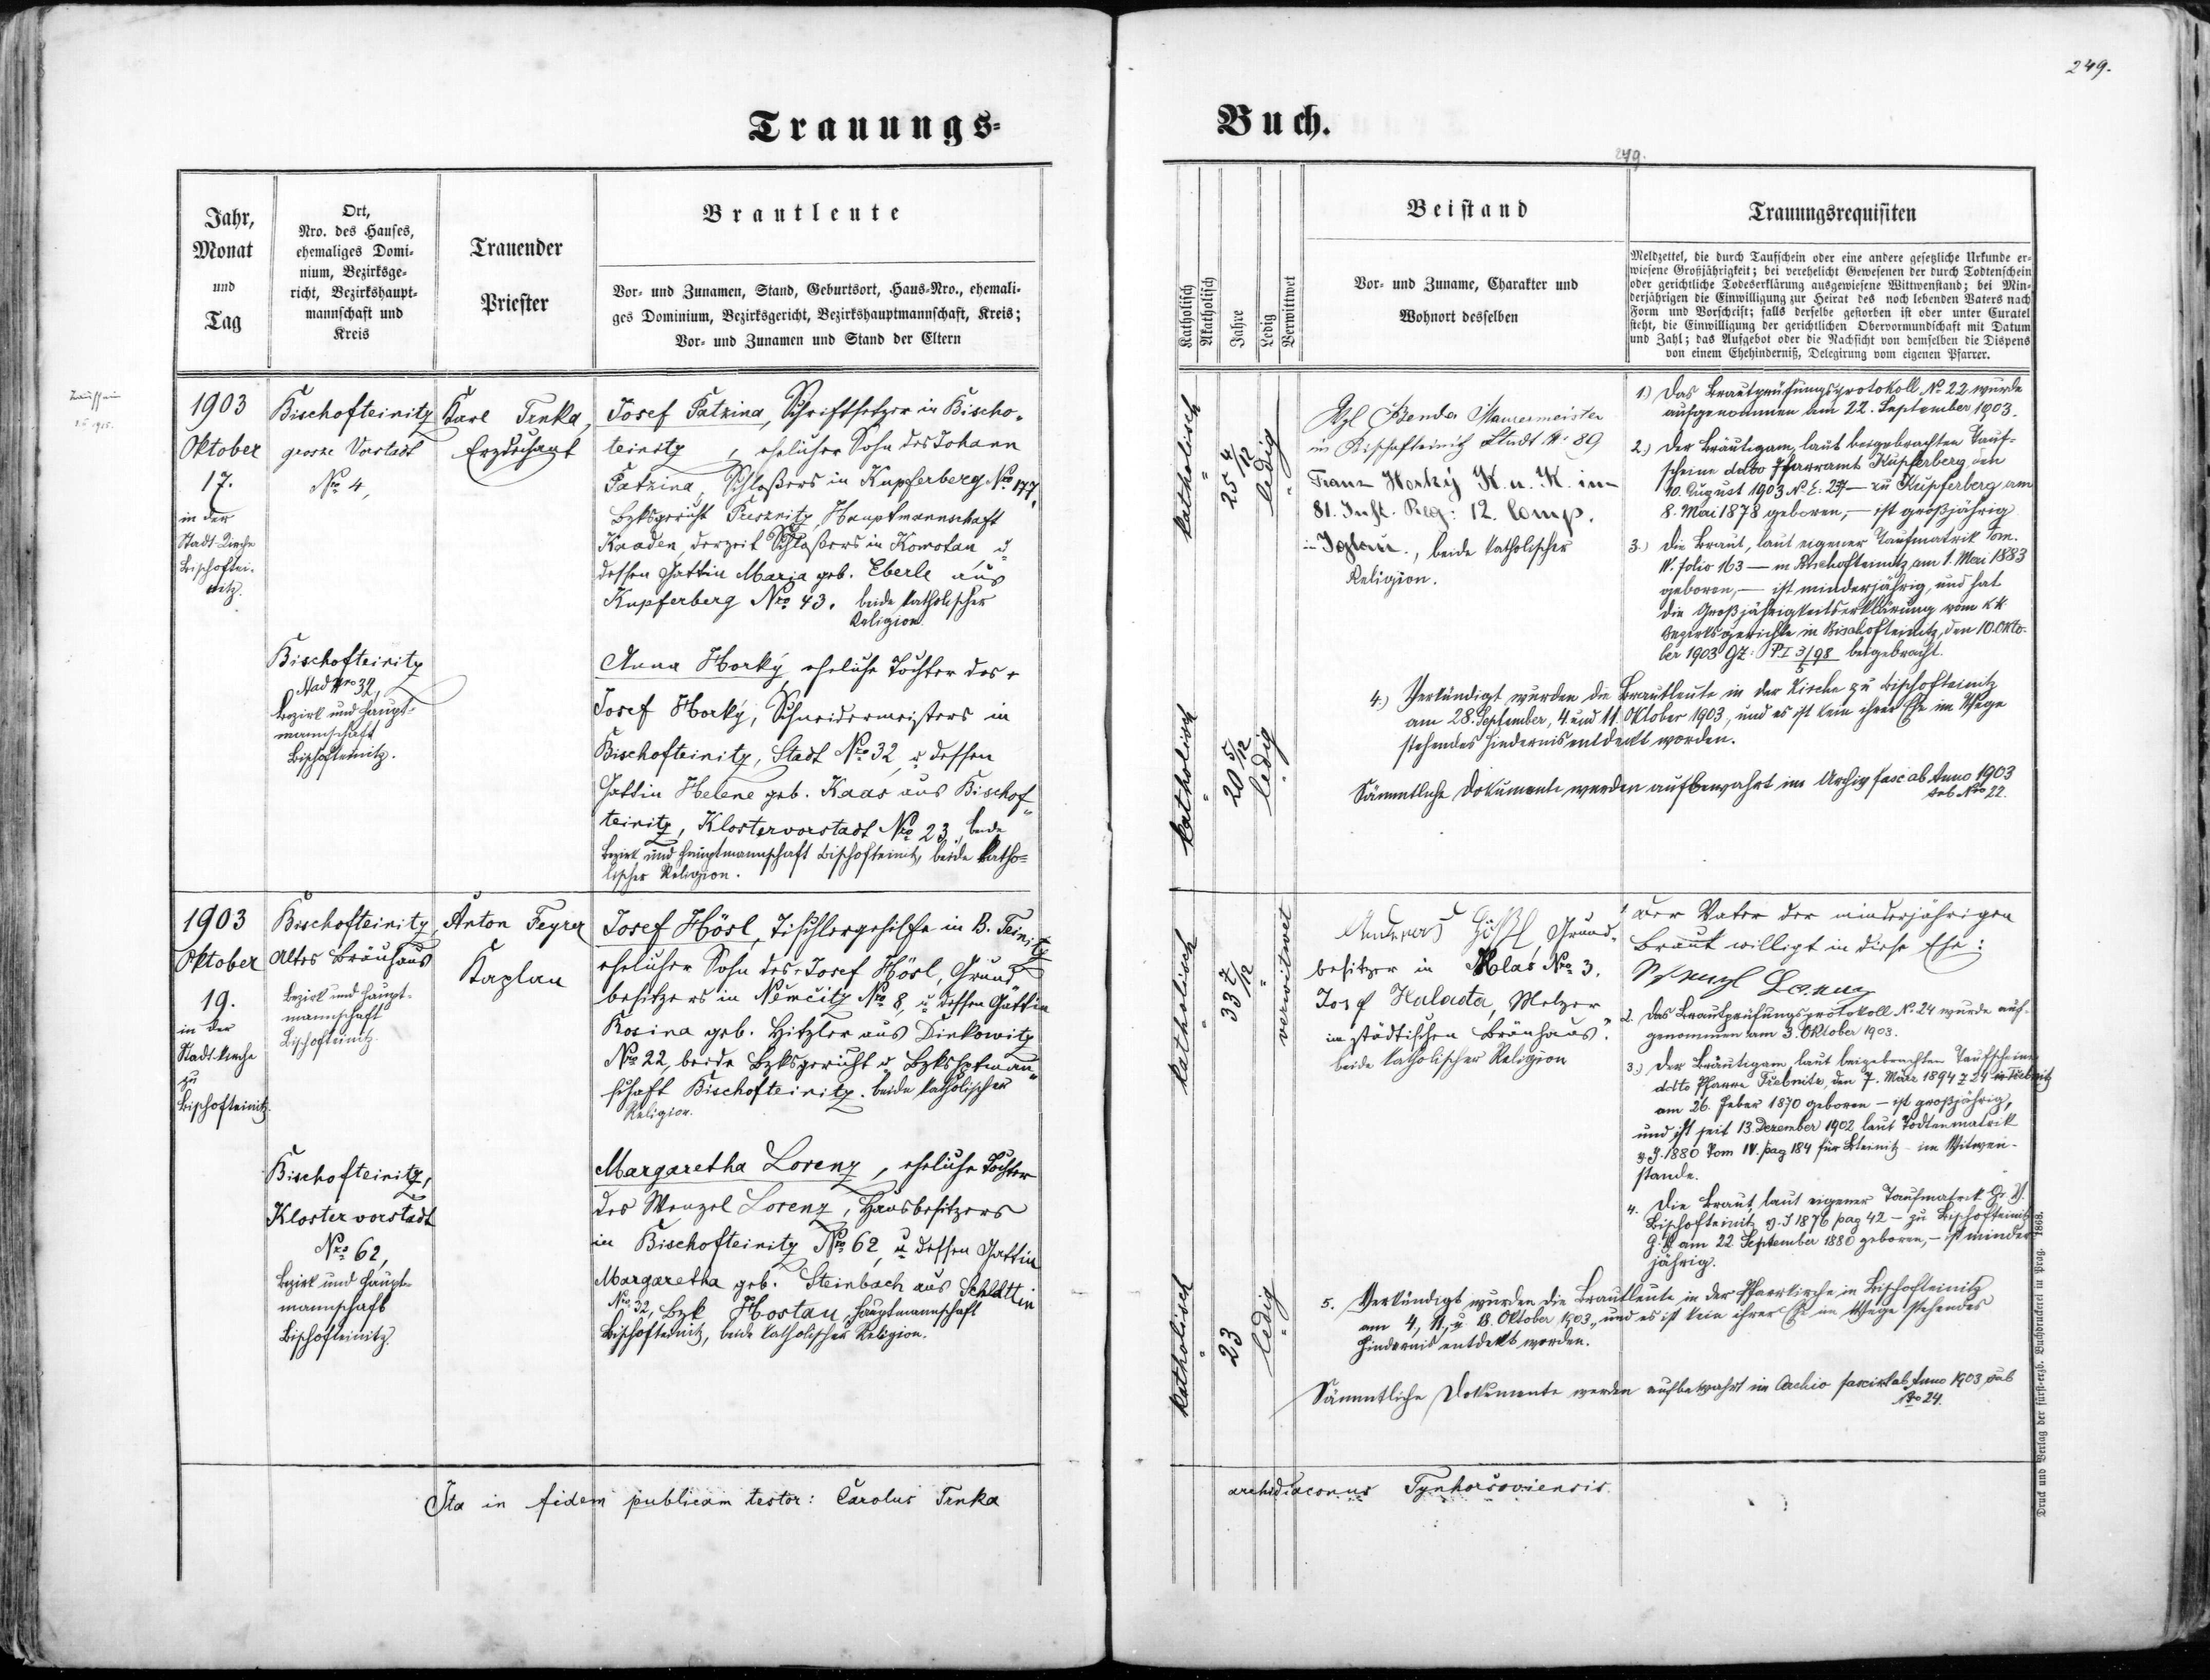 249.
Trauungs=
Buch.
249.
Jahr,
Monat
und
Tag
Ort,
Nro. des Hauses,
ehemaliges Domi-
nium, Bezirksge-
richt, Bezirkshaupt-
mannschaft und
Kreis
Trauender
Priester
Brautleute
Vor- und Zunamen, Stand, Geburtsort, Haus-Nro., ehemali-
ges Dominium, Bezirksgericht, Bezirkshauptmannschaft, Kreis;
Vor- und Zunamen und Stand der Eltern
Katholisch
Akatholisch
Jahre
Ledig
Verwittwet
Beistand
Vor- und Zuname, Charakter und
Wohnort desselben
Trauungsrequisiten
Meldzettel, die durch Taufschein oder eine andere gesetzliche Urkunde er-
wiesene Großjährigkeit; bei verehelicht Gewesenen der durch Todtenschein
oder gerichtliche Todeserklärung ausgewiesene Wittwenstand; bei Min-
derjährigen die Einwilligung zur Heirat des noch lebenden Vaters nach
Form und Vorschrift; falls derselbe gestorben ist oder unter Curatel
steht, die Einwilligung der gerichtlichen Obervormundschaft mit Datum
und Zahl; das Aufgebot oder die Nachsicht von demselben die Dispens
von einem Ehehinderniß, Delegirung vom eigenen Pfarrer.
Taufschein
1903
Oktober
17.
in der
Stadt-Kirche
Bischoftei-
nitz.
Bischofteinitz
grosse Vorstadt
Nro 4,
Karl Trnka,
Erzdechant
Josef Patzina, Schriftsetzer in Bischo-
teinitz, ehelicher Sohn des Johann
Patzina, Schloßers in Kupferberg Nro 177,
Bzksgericht Pressnitz, Hauptmannschaft
Kaaden, derzeit Schloßers in Komotau, u
dessen Gattin Maria geb. Eberle aus
Kupferberg Nro 43. beide katholischer
Religion.
Bischofteinitz
Stadt Nro 32,
Bezirk und Haupt-
mannschaft
Bischofteinitz.
Anna Horký, eheliche Tochter des
Josef Horký, Schneidermeisters in
Bischofteinitz, Stadt Nro 32, u dessen
Gattin Helene geb. Kaas aus Bischof-
teinitz, Klostervorstadt Nro 23, beide
Bezirk und Hauptmannschaft Bischofteinitz, beide katho-
lischer Religion.
katholisch
25 4/12
ledig
katholisch
20 5/12
ledig
Benda Maurermeister
in Bischofteinitz Stadt N: 89
Franz Horký K. u. K. in-
81. Inft. Reg: 12. Comp.
in Iglau., beide katholischer
Religion.
1.) Das Brautprüfungsprotokoll No 22 wurde
aufgenommen am 22. September 1903.
2.) Der Bräutigam, laut beigebrachten Tauf-
scheine ddto Pfarramt Kupferberg, den
10. August 1903 No E: 237 — zu Kupferberg am
8. Mai 1878 geboren, — ist großjährig
3.) Die Braut, laut eigener Taufmatrik Tom.
IV. folio 163 — in Bischofteinitz am 1. Mai 1883
geboren, — ist minderjährig, und hat
die Großjährigkeitserklärung vom k.k.
Bezirksgerichte in Bischofteinitz, den 10. Okto-
ber 1903 GZ: P I 3/98 beigebracht.
5
4.) Verkündigt wurden die Brautleute in der Kirche zu Bischofteinitz
am 28. September, 4 und 11. Oktober 1903, und es ist kein ihrer Ehe im Wege
stehendes Hindernis entdeckt worden.
Sämmtliche Dokumente werden aufbewahrt im Archiv fasc ab Anno 1903
sub Nro 22.
1903
Oktober
19.
in der
Stadt-Kirche
zu
Bischofteinitz.
Bischofteinitz,
Altes Bräuhaus
Bezirk und Haupt-
mannschaft
Bischofteinitz.
Anton Feyrer
Kaplan
Josef Hösl, Tischlergehilfe in B. Teinitz
ehelicher Sohn des Josef Hösl, Grund-
besitzers in Němčitz Nro 8, u dessen Gattin
Rosina geb. Hitzler aus Dinkowitz
Nro 22, beide Bzksgericht u Bzkshptman-
schaft Bischofteinitz. beide katholischer
Religion.
Bischofteinitz,
Klostervorstadt
Nro 62,
Bezirk und Haupt-
mannschaft
Bischofteinitz.
Margaretha Lorenz, eheliche Tochter
des Wenzel Lorenz, Hausbesitzers
in Bischofteinitz Nro 62, u dessen Gattin
Margaretha geb. Steinbach aus Schlattin
Nro 32, Bzk Hostau, Hauptmannschaft
Bischofteinitz, beide katholischer Religion.
katholisch
33 7/12
verwitwet
katholisch
23
ledig
Andreas Hößl, Grund-
besitzer in Hlas Nro 3.
Josef Halada, Melzer
im städtischen Bräuhaus.
beide katholischer Religion
1. Der Vater der minderjährigen
Braut willigt in diese Ehe:
Wenzl Lorenz
2. Das Brautprüfungsprotokoll No 24 wurde auf-
genommen am 3. Oktober 1903.
3.) Der Bräutigam, laut beigebrachten Taufscheine
ddto Pfarre Třebnitz, den 7. März 1894 Z 24 in Třebnitz
am 26. Feber 1870 geboren — ist großjährig,
und ist seit 13. Dezember 1902 laut Todtenmatrik
v. J. 1880 Tom IV. pag 184 für Bteinitz — im Witwen-
stande.
4. Die Braut, laut eigener Taufmatrik
Bischofteinitz v. J 1876 pag 42 — zu Bischofteinitz
am 22. September 1880 geboren, — ist minder-
jährig.
5. Verkündigt wurden die Brautleute in der Pfarrkirche in Bischofteinitz
am 4, 11, u 18. Oktober 1903, und es ist kein ihrer Ehe im Wege stehendes
Hindernis entdekt worden.
Sämmtliche Dokumente werden aufbewahrt im Archiv ab Anno 1903 sub
Nro 24.
Ita in fidem publicam testor: Carolus Trnka
archidiaconus Tynhorsoviensis.
Druck und Verlag der fürst-erzb. Buchdruckerei in Prag. 1868.